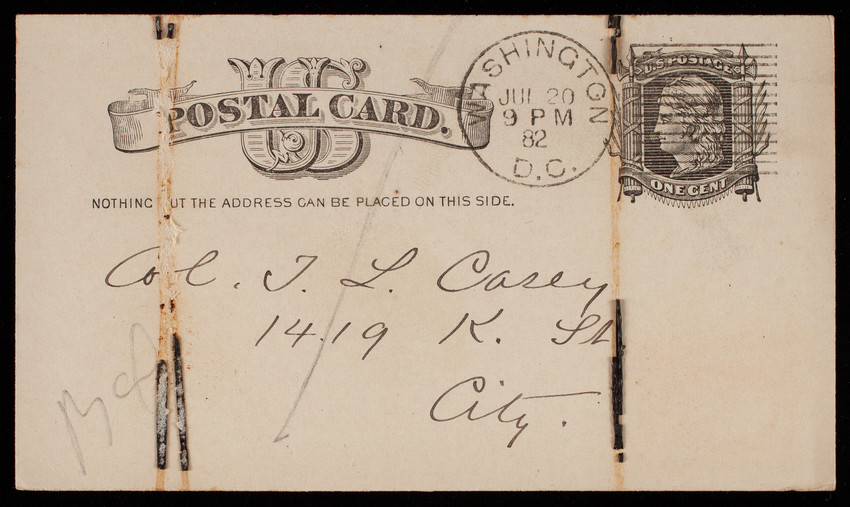 US
POSTAL CARD.
WASHINGTON
JUL 20
9 PM
82
D.C.
U.S. POSTAGE
ONE CENT
NOTHING UT THE ADDRESS CAN BE PLACED ON THIS SIDE.
Col. T. L. Casey
1419 K. St
City.